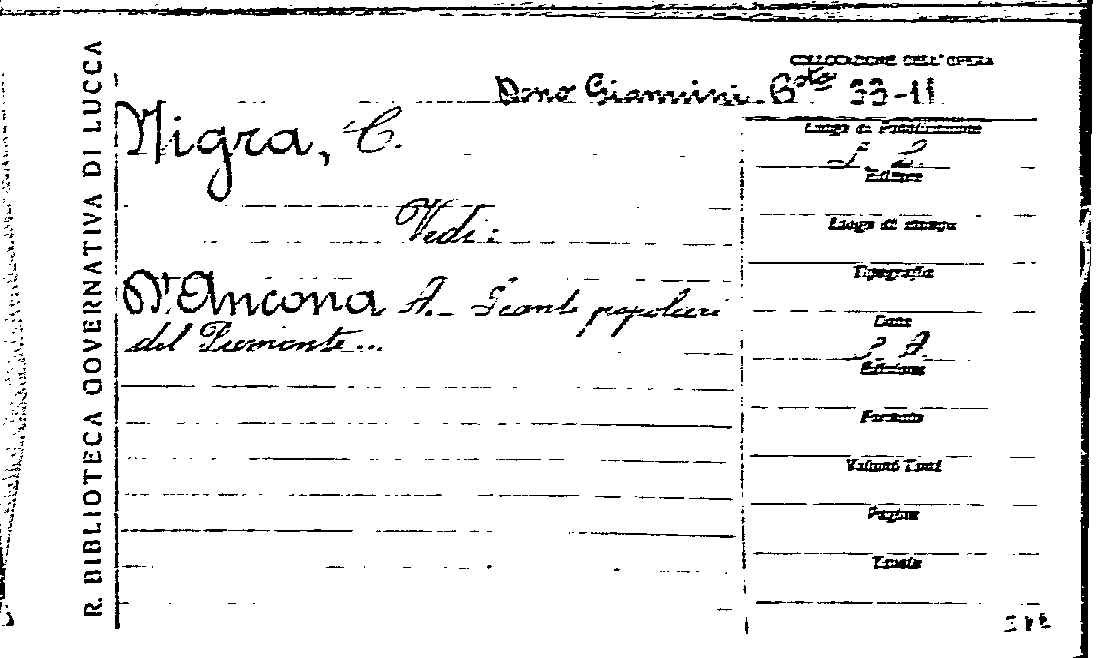 R. BIBLIOTECA GOVERNATIVA DI LUCCA
COLLOCAZIONE DELL'OPERA
Dono Giannini. Bta 33-11
Nigra, C.
Vedi:
D'Ancona A. - I canti popolari
del Piemonte...
Luogo di Pubblicazione
S. L.
Editore
Luogo di stampa
Tipografia
Data
S. A.
Edizione
Formato
Volumi Tomi
Pagine